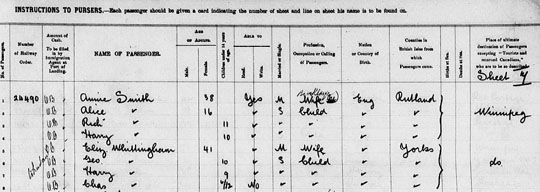 INSTRUCTIONS TO PURSERS.—Each passenger should be given a card indicating the number of sheet and line on sheet his name is to be found on.
No. of Passengers. Number of Railway Order. Amount of Cash. To be filled in by Immigration Agent at Port of Landing. NAME OF PASSENGER. AGE OF ADULTS. Male. Female. Children under 14 years of age. ABLE TO Read. Write. Married or Single. Profession, Occupation or Calling of Passengers. Nation or Country of Birth. Counties in British Isles from which Passengers come. Births at Sea. Deaths at Sea. Place of ultimate destination of Passengers excepting "Tourists and returned Canadians," who are to be so described
Sheet 4
24490 UB Annie Smith 38 Yes M Wife Eng Rutland
UB Alice " 16 " S Child " " Winnipeg
UB Rich " 11 " " " " "
UB Harry " 10 " " " " "
UB Eliz Whittingham 41 " M Wife " Yorks
UB Geo. " 10 " S Child " " do
UB Harry " 9 " " " " "
UB Chas " No " " " "